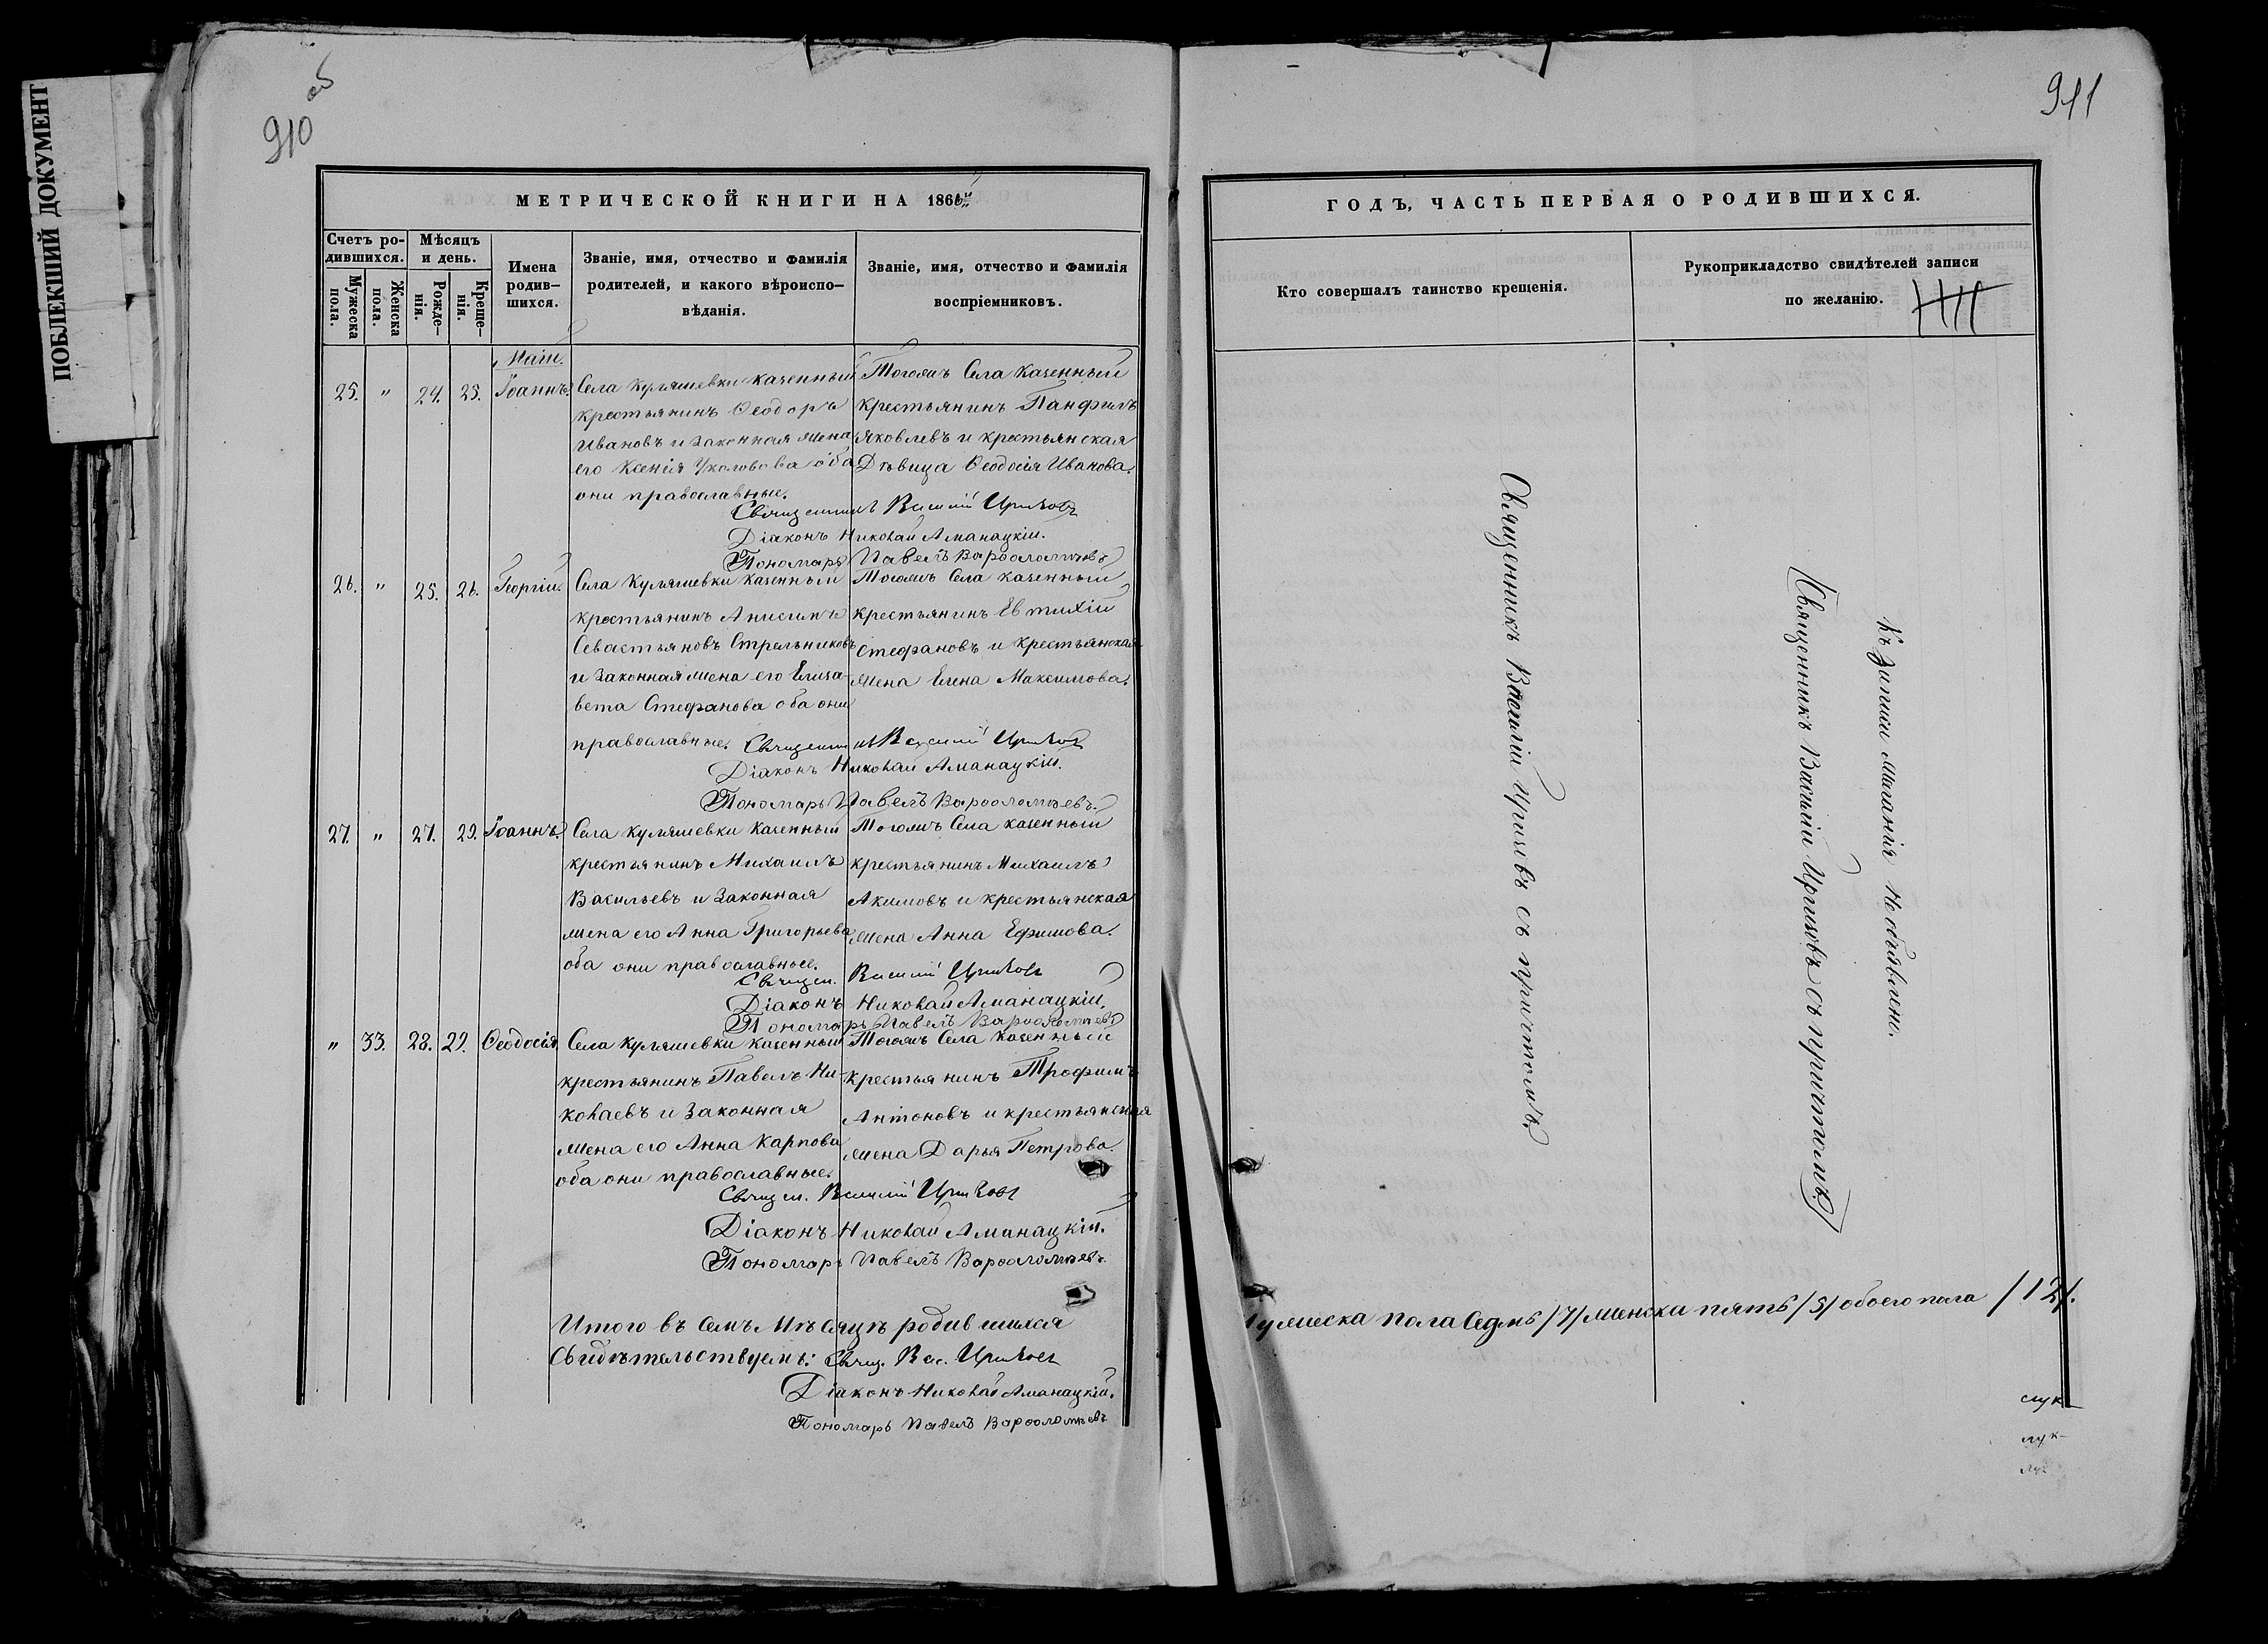 ПОБЛЕКШИЙ ДОКУМЕНТ
910 об
МЕТРИЧЕСКОЙ КНИГИ НА 1866й
Счетъ ро-
дившихся.
Мужеска пола.
Женска пола.
Мѣсяцъ
и день.
Рожде-
нія.
Креще-
нія.
Имена
родив-
шихся.
Званіе, имя, отчество и фамилія
родителей, и какого вѣроиспо-
вѣданія.
Званіе, имя, отчество и фамилія
воспріемниковъ.
Маій.
25. " 24. 25. Іоаннъ.
Села Куляшевки казенный
крестьянинъ Ѳеодоръ
Ивановъ и законная жена
его Ксенія оба
они православные.
Тогожъ Села Казенный
крестьянинъ Панфилъ
Яковлевъ и крестьянская
Дѣвица Ѳеодосія Иванова.
Священникъ Василій
Діаконъ Николай Аманацкій.
Пономарь Павелъ Варѳоломѣевъ
26. " 25. 26. Георгій.
Села Куляшевки казенный
крестьянинъ Анисимъ
Севастьяновъ Стрельниковъ
и Законная жена его Елиза-
вета Стефанова оба они
православные.
Тогожъ Села казенный
крестьянинъ Евтихій
Стефановъ и крестьянская
жена Елена Максимова.
Священникъ Василій
Діаконъ Николай Аманацкій.
Пономарь Павелъ Варѳоломѣевъ.
27. " 27. 29. Іоаннъ.
Села Куляшевки Казенный
крестьянинъ Михаилъ
Васильевъ и Законная
жена его Анна Григорьева
оба они православные.
Тогожъ Села казенный
крестьянинъ Михаилъ
Акимовъ и крестьянская
жена Анна Ефимова.
Священ. Василій
Діаконъ Николай Аманацкій.
Пономарь Павелъ Варѳоломѣевъ
" 33. 28. 29. Ѳеодосія
Села Куляшевки казенный
крестьянинъ Павелъ Ни-
колаевъ и Законная
жена его Анна Карпова
оба они православные.
Тогожъ Села Казенный
крестьянинъ Трофимъ
Антоновъ и крестьянская
жена Дарья Петрова.
Священ. Василій
Діаконъ Николай Аманацкій.
Пономарь Павелъ Варѳоломѣевъ.
Итого въ семъ Мѣсяцѣ родившихся
Свидѣтельствуемъ: Свящ. Вас.
Діаконъ Николай Аманацкій.
Пономарь Павелъ Варѳоломѣевъ
911
ГОДЪ, ЧАСТЬ ПЕРВАЯ О РОДИВШИХСЯ.
Кто совершалъ таинство крещенія.
Рукоприкладство свидѣтелей записи
по желанію.
Священникъ Василій с причтомъ
Къ Записи Желанія Необъявлено.
Священникъ Василій съ причтомъ
Мужеска пола Седмь /7/ Женска пять /5/ обоего пола /12/.